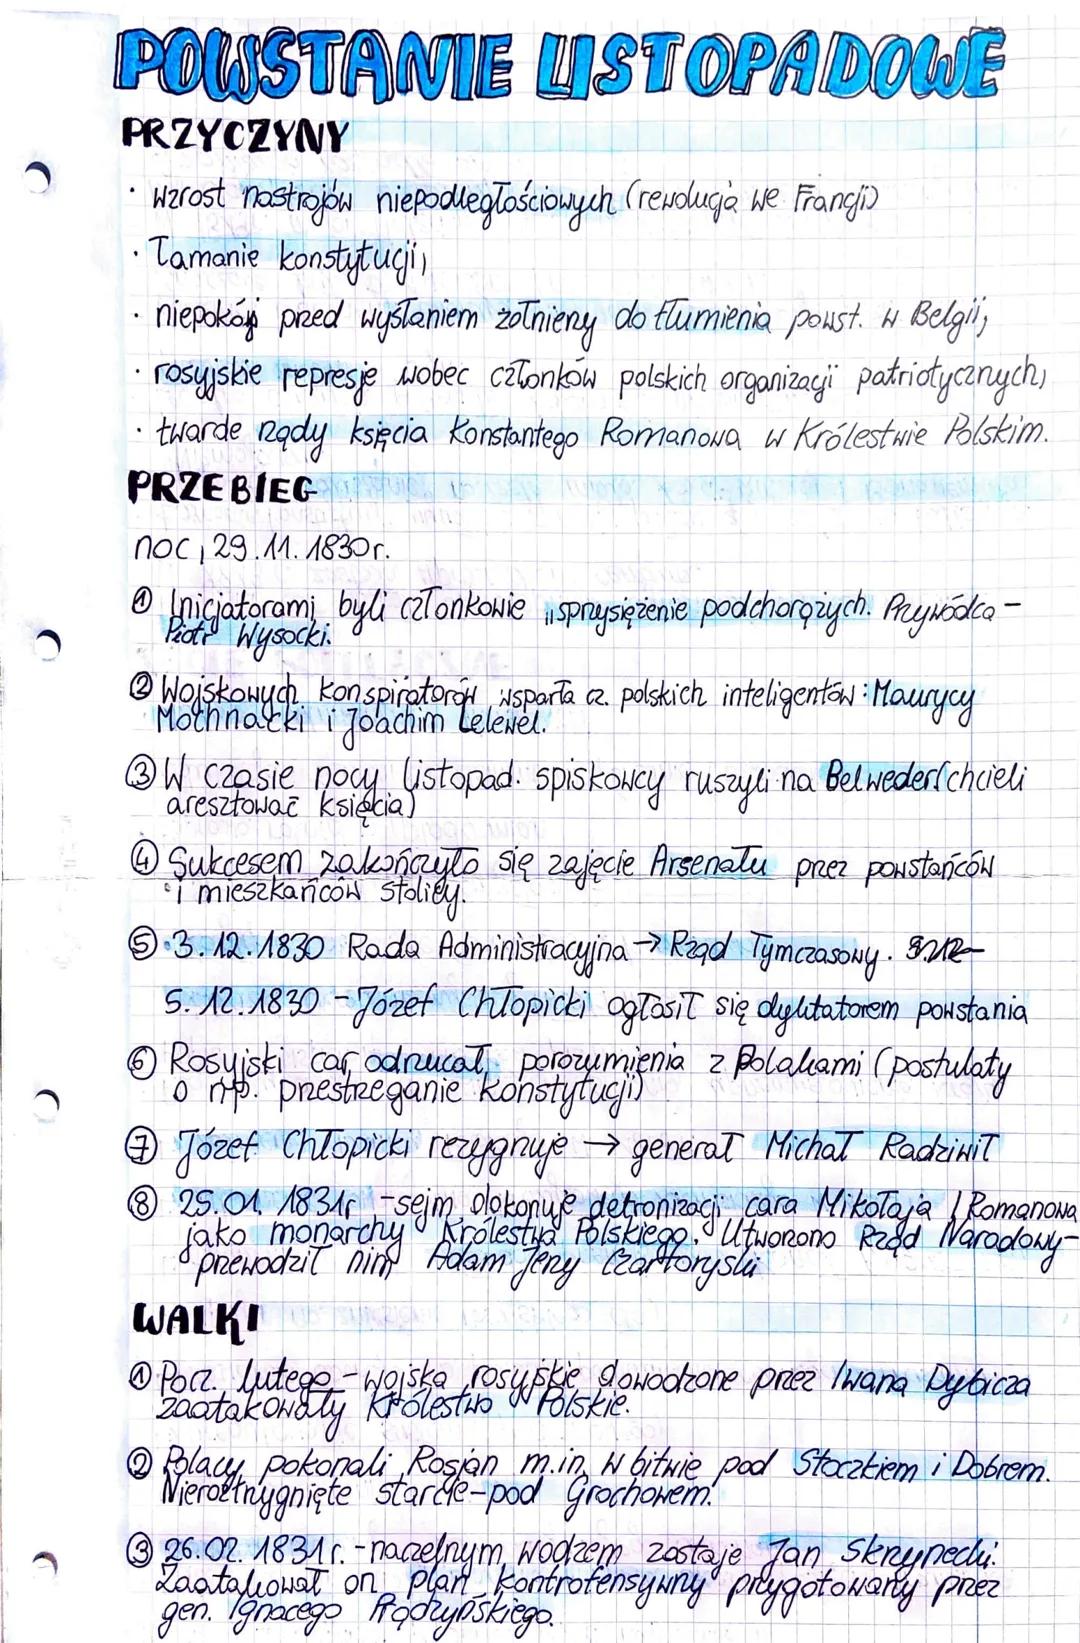 POWSTANIE LISTOPADOWE
PRZYCZYNY
· wzrost nastrojów niepodległościowych (rewolucja we Francji)
· Łamanie konstytucji,
· niepokój przed wysłaniem żołnierzy do tłumienia powst. w Belgii,
· rosyjskie represje wobec członków polskich organizacji patriotycznych,
· twarde rządy księcia Konstantego Romanowa w Królestwie Polskim.
PRZEBIEG
noc, 29.11.1830r.
① Inicjatorami byli członkowie „sprzysiężenie podchorążych. Przywódca -
Piotr Wysocki.
② Wojskowych konspiratorów wsparła cz. polskich inteligentów: Maurycy
Mochnacki i Joachim Lelewel.
③ W czasie nocy listopad. spiskowcy ruszyli na Belweder (chcieli
aresztować księcia)
④ Sukcesem zakończyło się zajęcie Arsenału przez powstańców
i mieszkańców stolicy.
⑤ · 3.12.1830 Rada Administracyjna → Rząd Tymczasowy.
5.12.1830 - Józef Chłopicki ogłosił się dyktatorem powstania
⑥ Rosyjski car odrzucał porozumienia z Polakami (postulaty
o np. przestrzeganie konstytucji)
⑦ Józef Chłopicki rezygnuje → generał Michał Radziwił
⑧ 25.01.1831r - sejm dokonuje detronizacji cara Mikołaja I Romanowa
jako monarchy Królestwa Polskiego. Utworzono Rząd Narodowy-
przewodził nim Adam Jerzy Czartoryski
WALKI
① Pocz. lutego - wojska rosyjskie dowodzone przez Iwana Dybicza
zaatakowały Królestwo Polskie.
② Polacy pokonali Rosjan m.in. w bitwie pod Stoczkiem i Dobrem.
Nierozstrzygnięte starcie - pod Grochowem.
③ 26.02.1831r. - naczelnym wodzem zostaje Jan Skrzynecki.
Zaatakował on plan kontrofensywny przygotowany przez
gen. Ignacego Prądzyńskiego.